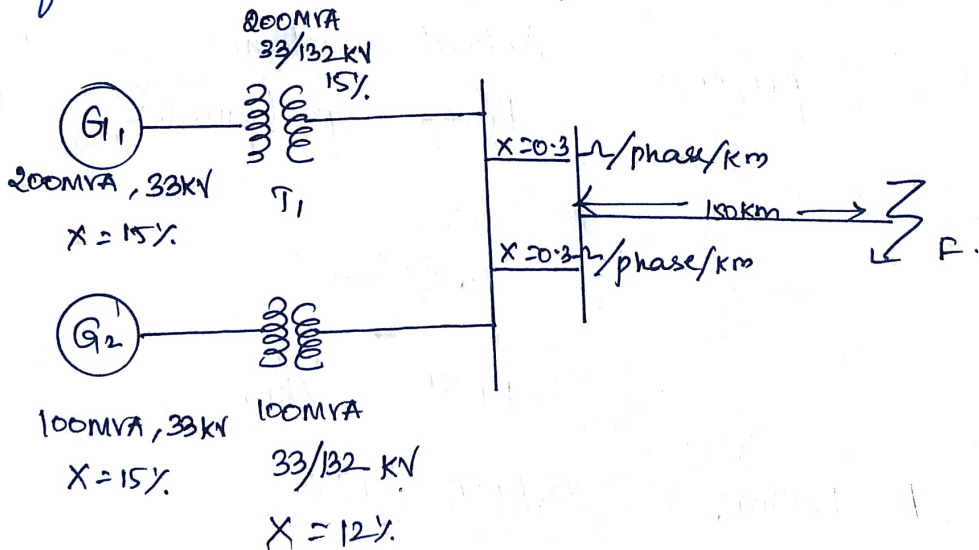 200MVA
33/132 KV
15%
G1
200MVA, 33KV
X = 15%
T1
X=0.3 Ω/phase/Km
150Km
X=0.3 Ω/phase/Km
F.
G2
100MVA, 33KV
X = 15%
100MVA
33/132 KV
X = 12%